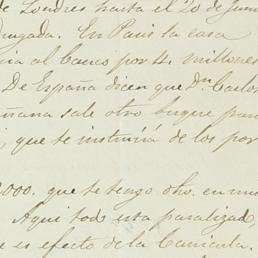 de Londres hasta el 20 de Juni
rugada. En Paris la casa
cia al Banco por 4. millones
De España dicen que Dn. Carlos
ñana sale otro buque para
que te instruirá de los por
000. que te tengo dho. en mi
Aqui todo esta paralizado,
e es efecto de la Canicula.